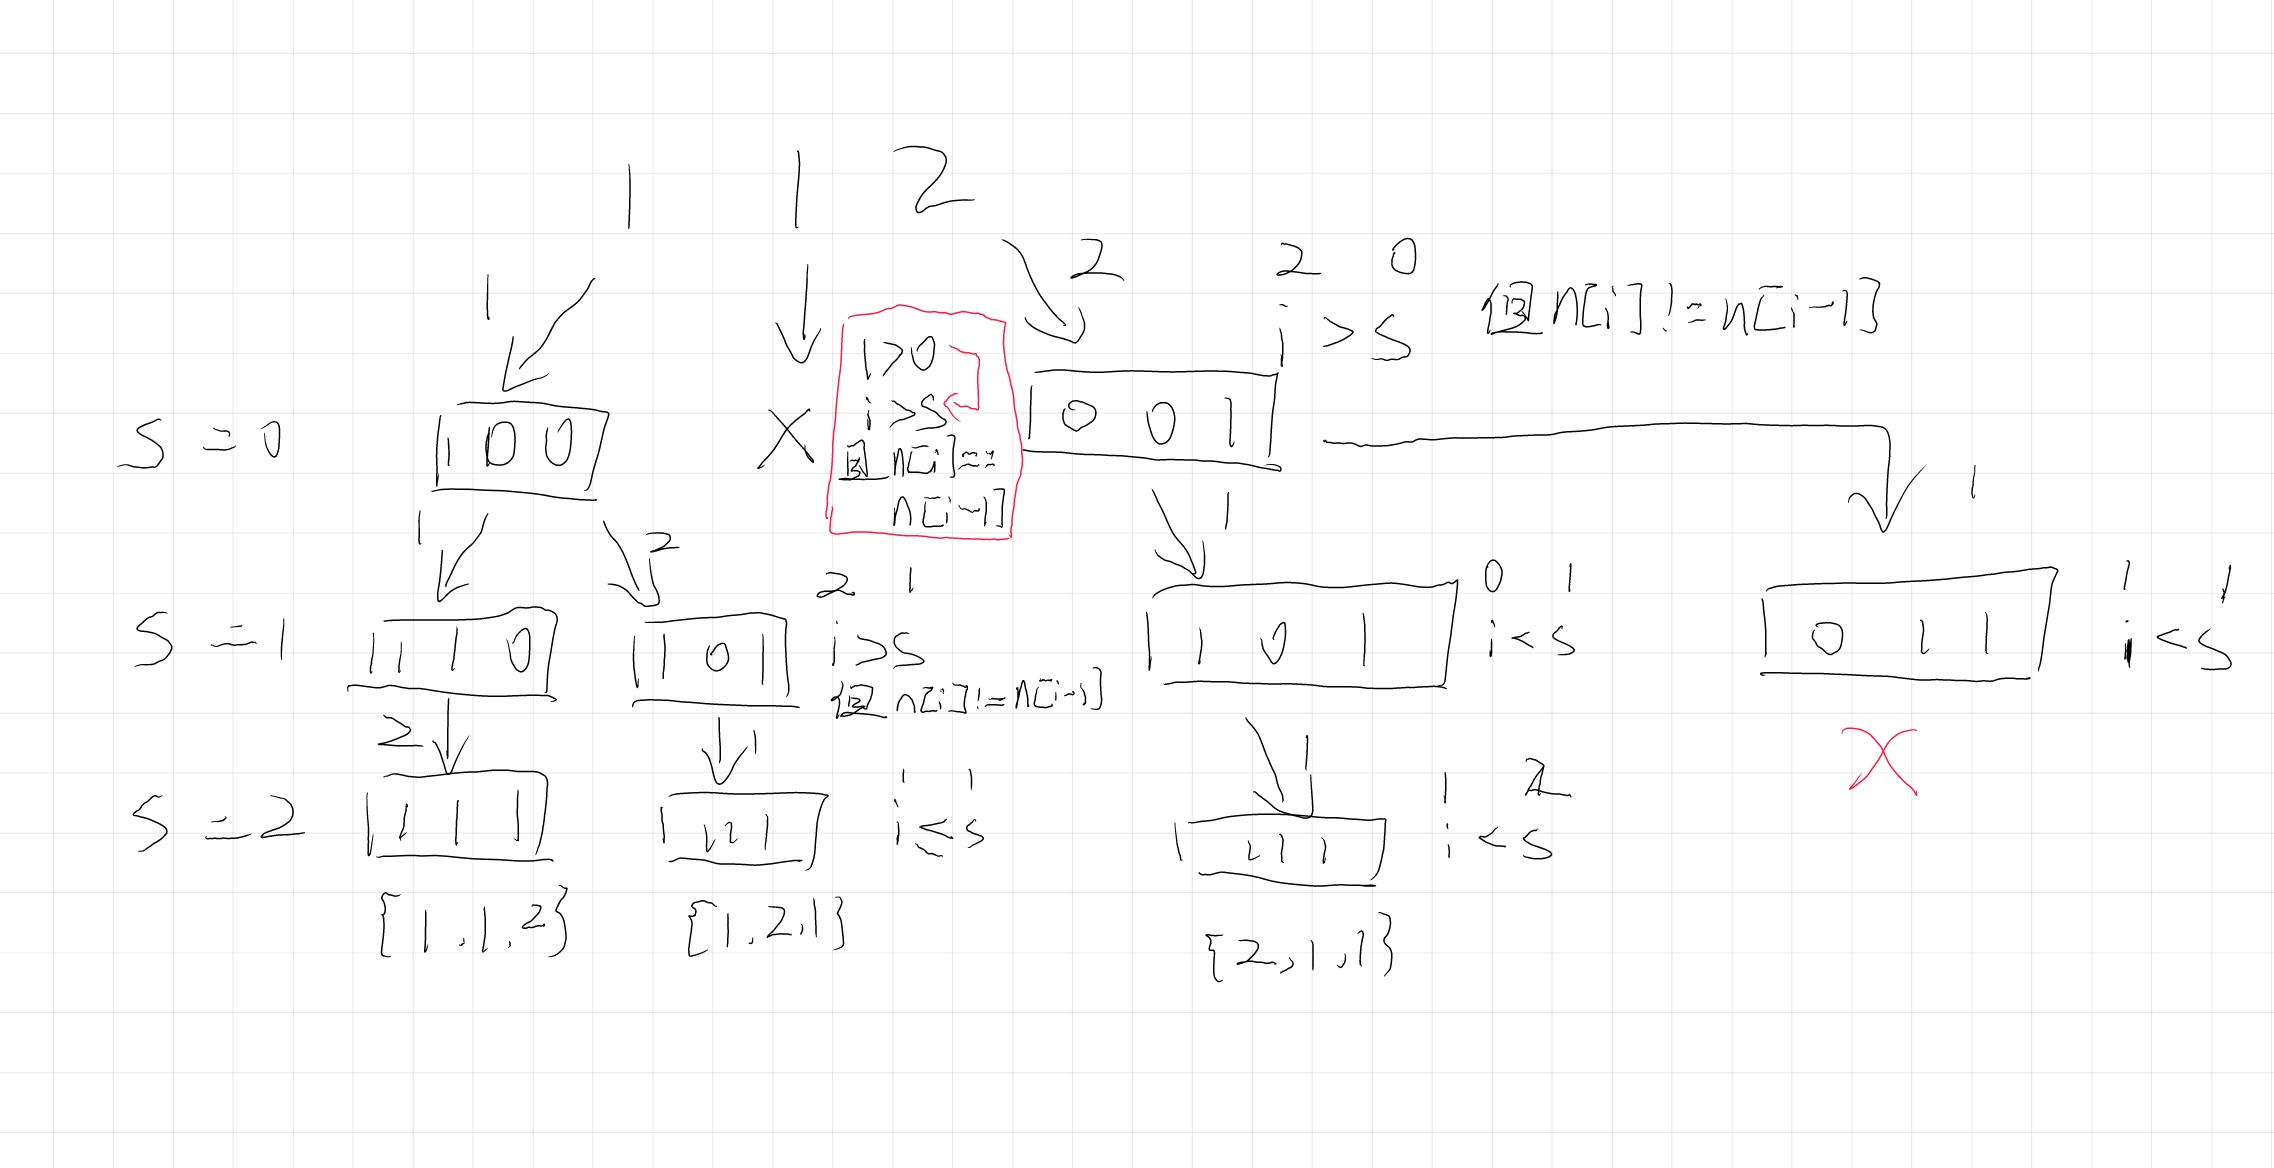 1 1 2
1
2
2 0
i > s 但 n[i] != n[i-1]
1>0
i>s
且 n[i]==
n[i-1]
S = 0
1 0 0
X
0 0 1
1
2
1
1
S = 1
1 1 0
1 0 1
2 1
i>s
但 n[i]!=n[i-1]
1 0 1
0 1
i<s
0 1 1
1 1
i<s
2
1
1
X
S = 2
1 1 1
1 1 1
1 1
i≤s
1 1 1
1 2
i<s
{1,1,2}
{1,2,1}
{2,1,1}